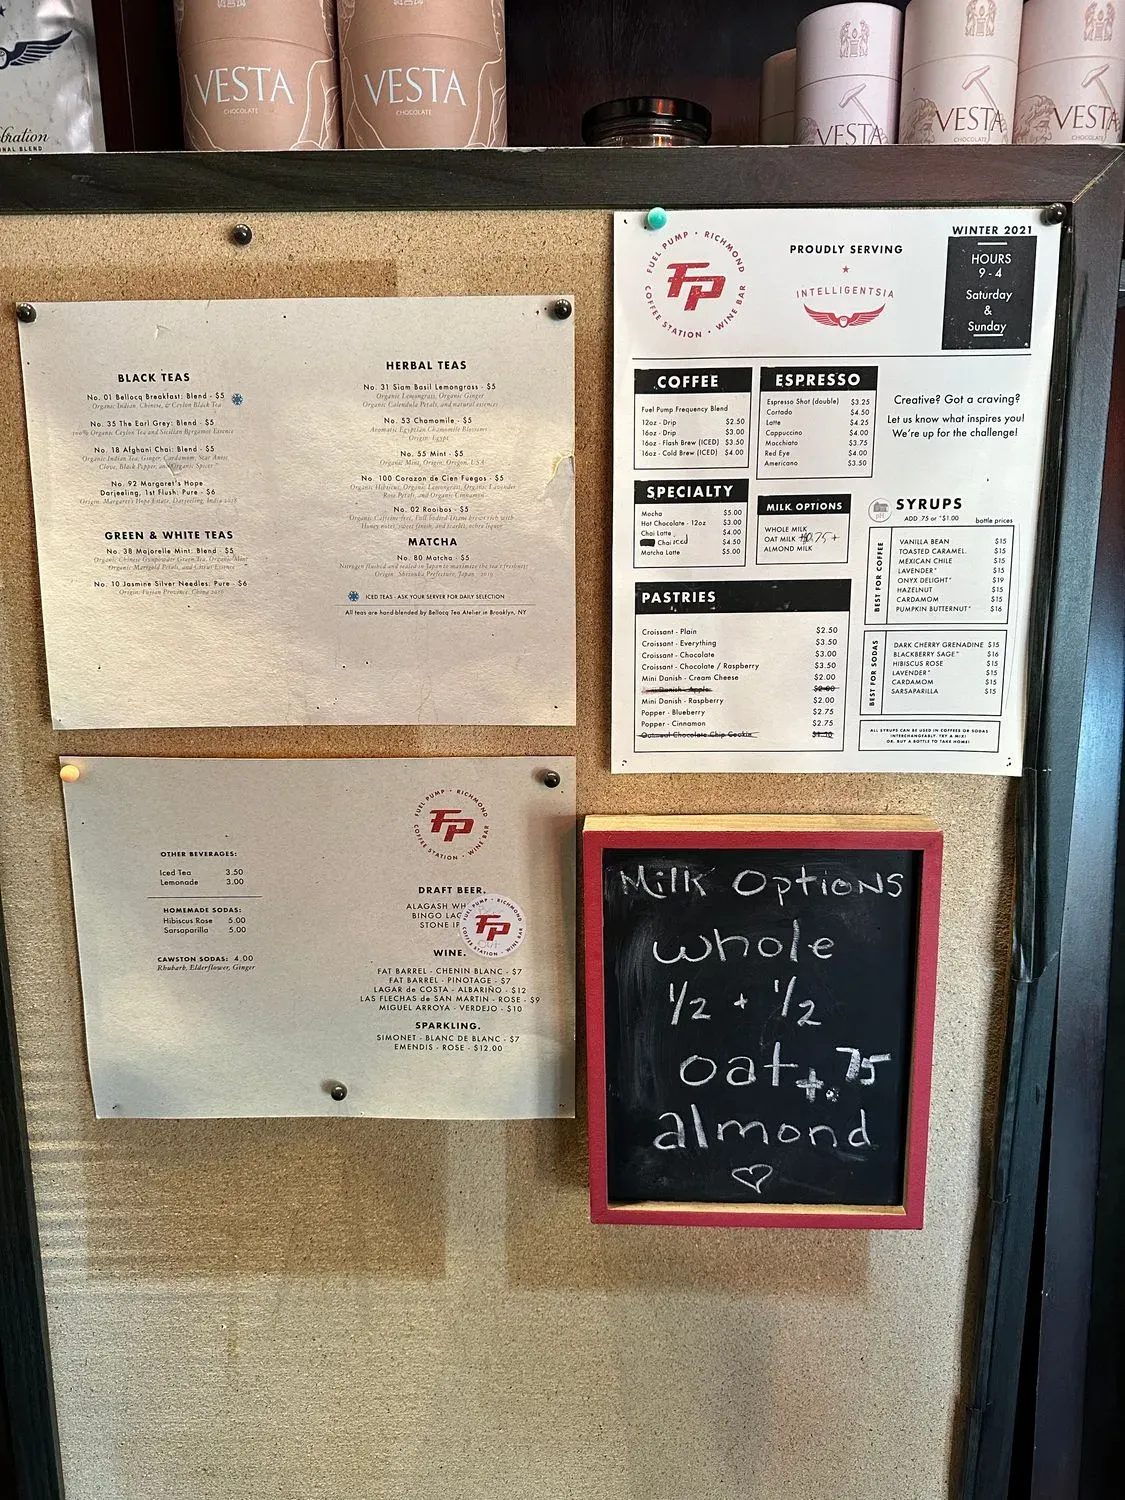 bration
NAL BLEND
VESTA
CHOCOLATE
VESTA
CHOCOLATE
VESTA
VESTA
CHOCOLATE
VESTA
CHOCOLATE
BLACK TEAS
No. 01 Bellocq Breakfast: Blend - $5
Organic Indian, Chinese, & Ceylon Black Tea
No. 35 The Earl Grey: Blend - $5
100% Organic Ceylon Tea and Sicilian Bergamot Essence
No. 18 Afghani Chai: Blend - $5
Organic Indian Tea, Ginger, Cardamom, Star Anise,
Clove, Black Pepper, and Organic Spices
No. 92 Margaret's Hope
Darjeeling, 1st Flush: Pure - $6
Origin: Margaret's Hope Estate, Darjeeling, India 2018
GREEN & WHITE TEAS
No. 38 Majorelle Mint: Blend - $5
Organic Chinese Gunpowder Green Tea, Organic Mint
Organic Marigold Petals, and Citrus Essence
No. 10 Jasmine Silver Needles: Pure - $6
Origin: Fujian Province, China 2016
HERBAL TEAS
No. 31 Siam Basil Lemongrass - $5
Organic Lemongrass, Organic Ginger
Organic Calendula Petals, and natural essences
No. 53 Chamomile - $5
Aromatic Egyptian Chamomile Blossoms
Origin: Egypt
No. 55 Mint - $5
Organic Mint, Origin: Oregon, USA
No. 100 Corazon de Cien Fuegos - $5
Organic Hibiscus, Organic Lemongrass, Organic Lavender
Rose Petals, and Organic Cinnamon
No. 02 Rooibos - $5
Organic Caffeine-free, Full bodied Tisane brews rich with
Honey notes, sweet finish, and
MATCHA
No. 80 Matcha - $5
Nitrogen flushed and sealed in Japan to maximize the tea's freshness
Origin: Shizuoka Prefecture, Japan
ICED TEAS - ASK YOUR SERVER FOR DAILY SELECTION
All teas are hand-blended by Bellocq Tea Atelier in Brooklyn, NY
FUEL PUMP • RICHMOND
COFFEE STATION • WINE BAR
FP
PROUDLY SERVING
INTELLIGENTSIA
WINTER 2021
HOURS
9 - 4
Saturday
&
Sunday
COFFEE
Fuel Pump Frequency Blend
12oz - Drip $2.50
16oz - Drip $3.00
16oz - Flash Brew (ICED) $3.50
16oz - Cold Brew (ICED) $4.00
ESPRESSO
Espresso Shot (double) $3.25
Cortado $4.50
Latte $4.25
Cappuccino $4.00
Macchiato $3.75
Red Eye $4.00
Americano $3.50
Creative? Got a craving?
Let us know what inspires you!
We're up for the challenge!
SPECIALTY
Mocha $5.00
Hot Chocolate - 12oz $3.00
Chai Latte $4.00
Chai iced $4.50
Matcha Latte $5.00
MILK OPTIONS
WHOLE MILK
OAT MILK +$0.75+
ALMOND MILK
SYRUPS
ADD .75 or *$1.00
bottle prices
BEST FOR COFFEE
VANILLA BEAN $15
TOASTED CARAMEL $15
MEXICAN CHILE $15
LAVENDER* $15
ONYX DELIGHT* $19
HAZELNUT $15
CARDAMOM $15
PUMPKIN BUTTERNUT* $16
BEST FOR SODAS
DARK CHERRY GRENADINE $15
BLACKBERRY SAGE* $16
HIBISCUS ROSE $15
LAVENDER* $15
CARDAMOM $15
SARSAPARILLA $15
ALL SYRUPS CAN BE USED IN COFFEES OR SODAS
INTERCHANGEABLY. TRY A MIX!
OR, BUY A BOTTLE TO TAKE HOME!
PASTRIES
Croissant - Plain $2.50
Croissant - Everything $3.50
Croissant - Chocolate $3.00
Croissant - Chocolate / Raspberry $3.50
Mini Danish - Cream Cheese $2.00
Danish - Apple $2.00
Mini Danish - Raspberry $2.00
Popper - Blueberry $2.75
Popper - Cinnamon $2.75
Oatmeal Chocolate Chip Cookie $1.50
OTHER BEVERAGES:
Iced Tea 3.50
Lemonade 3.00
HOMEMADE SODAS:
Hibiscus Rose 5.00
Sarsaparilla 5.00
CAWSTON SODAS: 4.00
Rhubarb, Elderflower, Ginger
FUEL PUMP • RICHMOND
COFFEE STATION • WINE BAR
FP
DRAFT BEER.
ALAGASH WH
BINGO LAG
STONE IP
FUEL PUMP • RICHMOND
COFFEE STATION • WINE BAR
FP
WINE.
FAT BARREL - CHENIN BLANC - $7
FAT BARREL - PINOTAGE - $7
LAGAR de COSTA - ALBARIÑO - $12
LAS FLECHAS de SAN MARTIN - ROSE - $9
MIGUEL ARROYA - VERDEJO - $10
SPARKLING.
SIMONET - BLANC DE BLANC - $7
EMENDIS - ROSE - $12.00
Milk Options
whole
1/2 + 1/2
oat + .75
almond